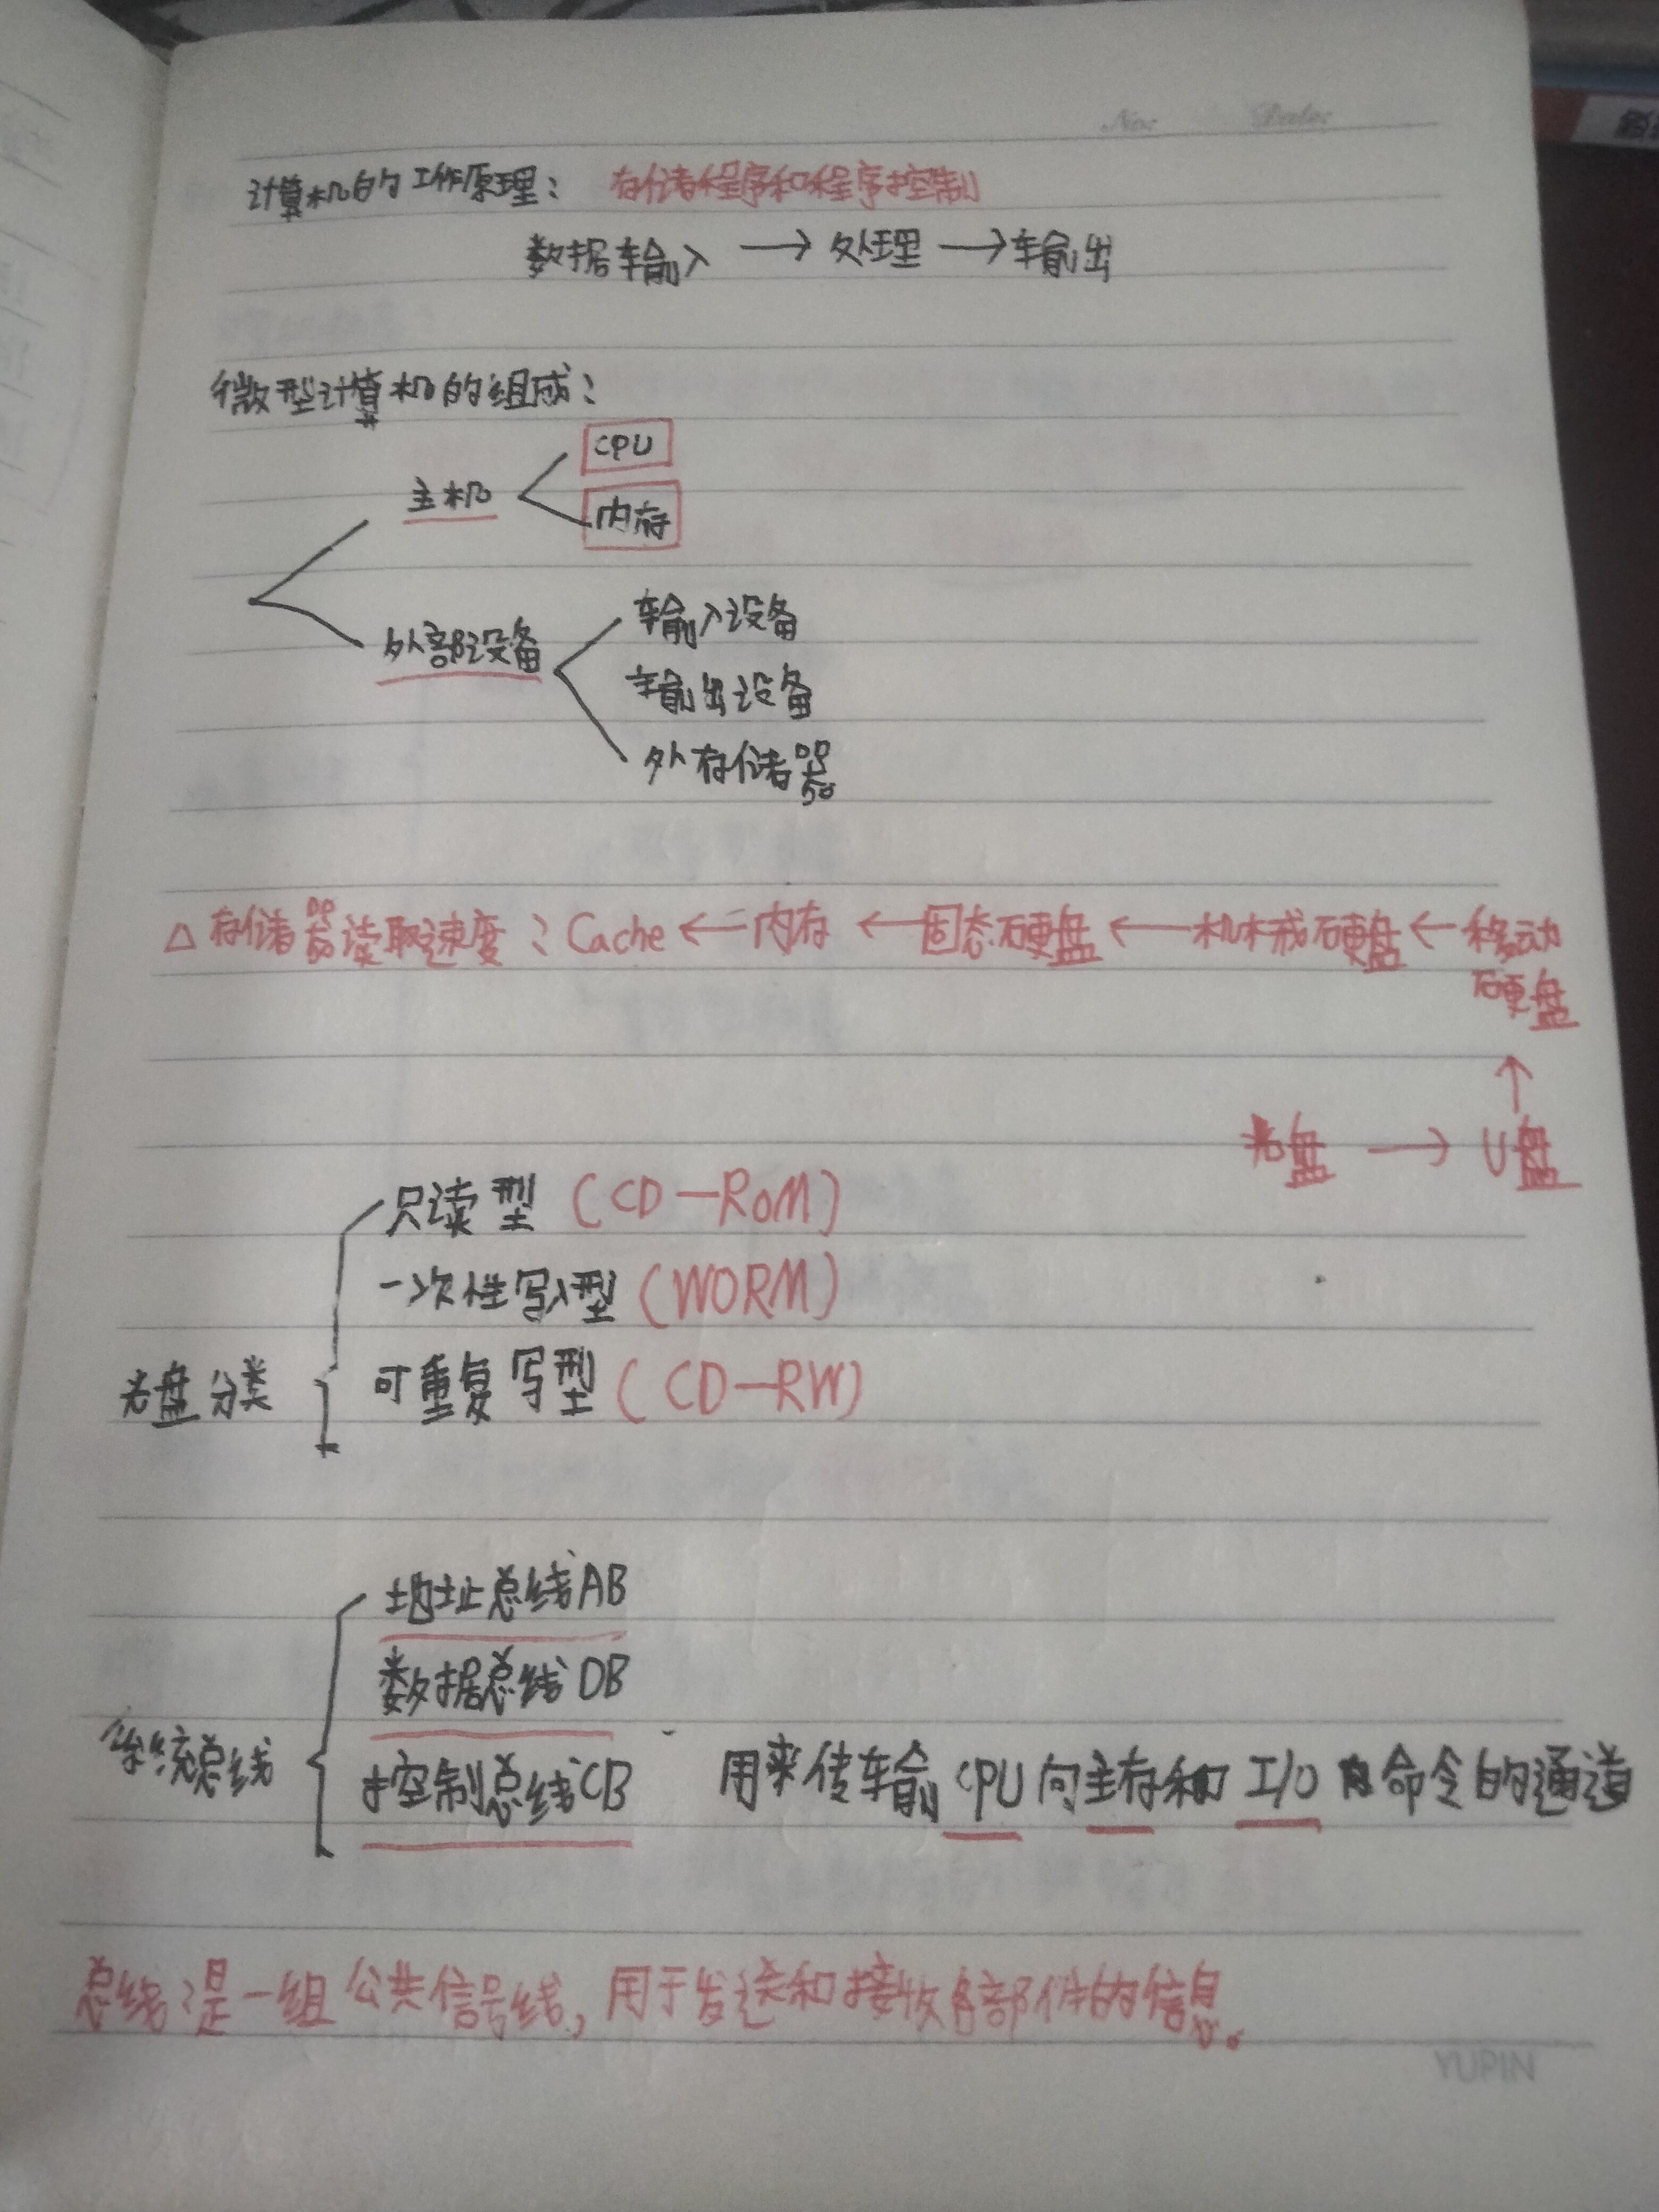 No: Date:
计算机的工作原理: 存储程序和程序控制
数据输入 → 处理 → 输出
微型计算机的组成:
CPU
主机
内存
输入设备
外部设备
输出设备
外存储器
△ 存储器读取速度: Cache ← 内存 ← 固态硬盘 ← 机械硬盘 ← 移动
硬盘
↑
光盘 → U盘
只读型 (CD-ROM)
一次性写入型 (WORM)
可重复写型 (CD-RW)
光盘分类
地址总线AB
数据总线DB
系统总线
控制总线CB 用来传输CPU向主存和I/O命令的通道
总线:是一组公共信号线,用于发送和接收各部件的信息。
YUPIN